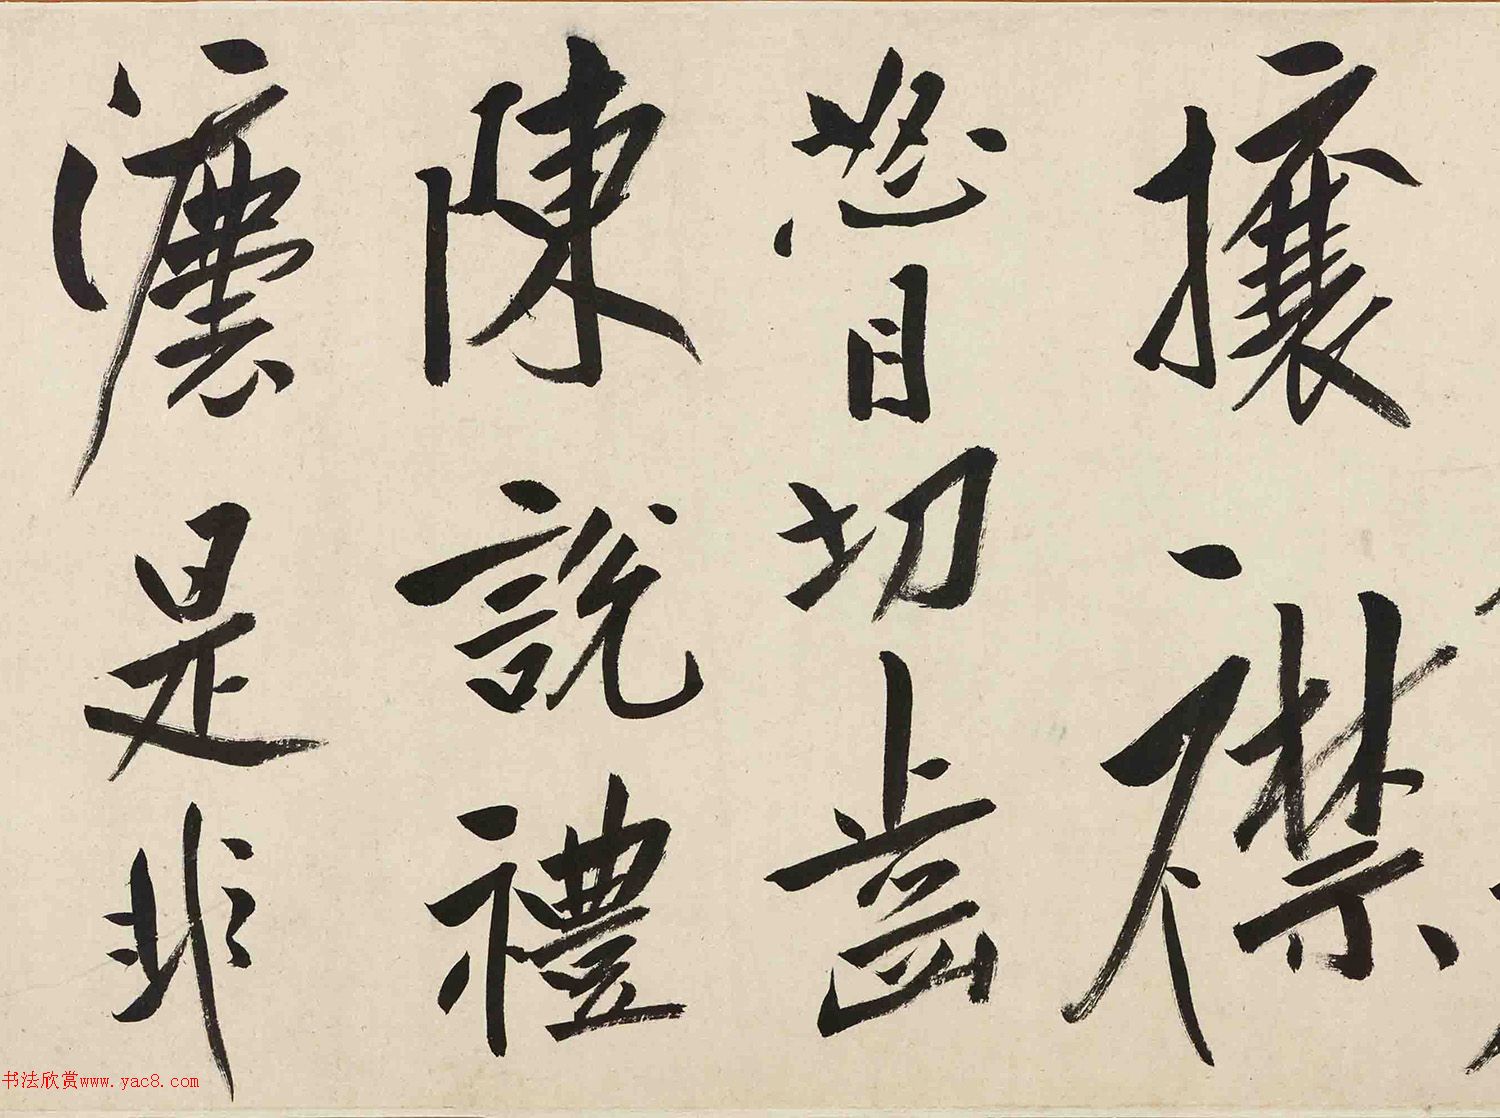 攘襟
怒目切齒
陳説禮
灋是非
书法欣赏www.yac8.com